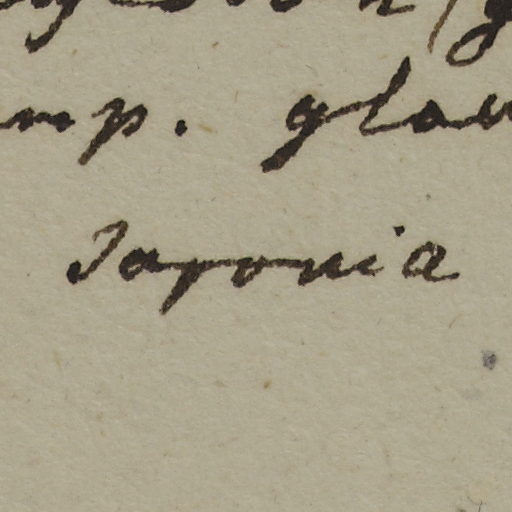 mp. glau
Japonia